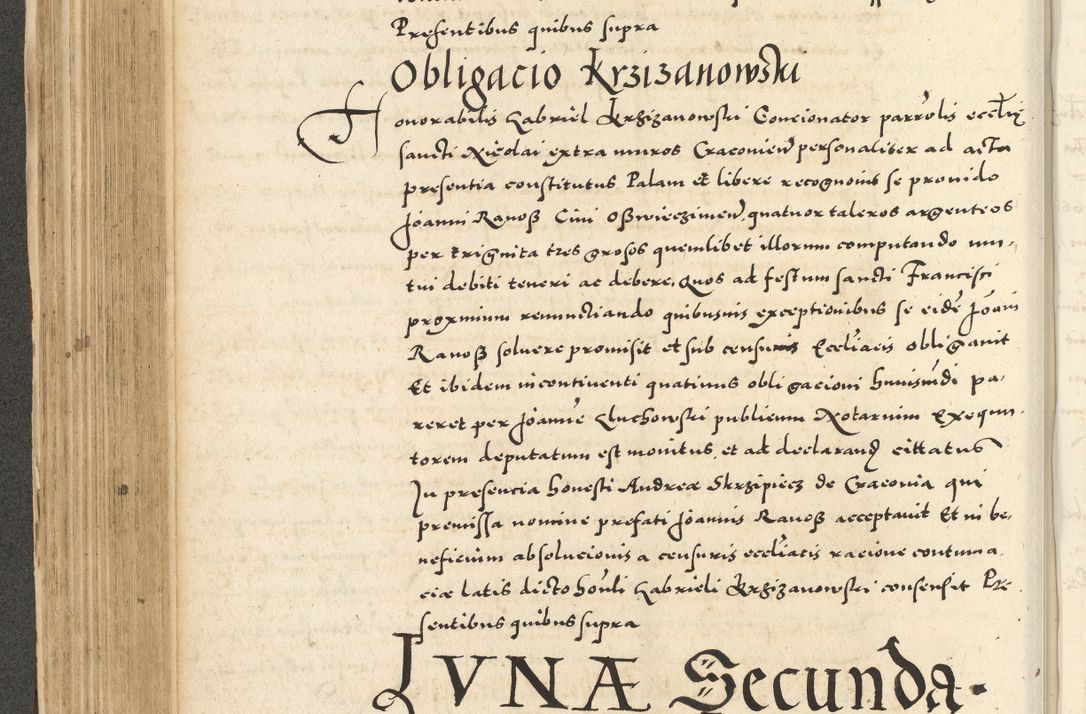 Presentibus quibus supra
Obligacio Krzizanowski
Honorabilis Gabriel Krzizanowski Concionator parrolis eccliæ
sancti Nicolai extra muros Cracovien personaliter ad acta
presentia constitutus. Palam et libere recognovit se provido
Joanni Ranosz Civi Oszwieczimen, quatuor taleros argenteos
per triginta tres grosos quemlibet illorum computando mu-
tui debiti teneri ac debere, Quos ad festum sancti Francisci
proximum renunctiando quibusvis exceptionibus se eidē Joāni
Ranosz solvere promisit et sub censuris Eccliacis obligavit
Et ibidem incontinenti quatinus obligacioni huiusmōdi pa-
reret per Joannē Chuchowski publicum Notarium Exequu-
torem deputatum est monitus, et ad declarand cittatus
In presencia honesti Andreæ Skrzipiecz de Cracovia qui
premissa nomine prefati Joannis Ranosz acceptavit Et in be-
neficium absolucionis a censuris eccliacis racione contuma-
ciæ latis dicto honli Gabrieli Krzizanowski consensit Pre-
sentibus quibus supra
LVNÆ Secunda.